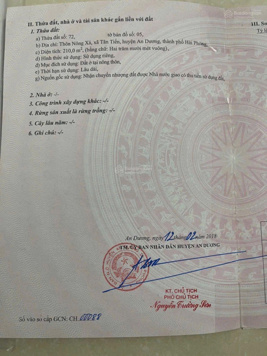 II. Thửa đất, nhà ở và tài sản khác gắn liền với đất
1. Thửa đất:
a) Thửa đất số: 72, tờ bản đồ số: 05,
b) Địa chỉ: Thôn Nông Xá, xã Tân Tiến, huyện An Dương, thành phố Hải Phòng,
c) Diện tích: 210,0 m², (bằng chữ: Hai trăm mười mét vuông),
d) Hình thức sử dụng: Sử dụng riêng,
đ) Mục đích sử dụng: Đất ở tại nông thôn,
e) Thời hạn sử dụng: Lâu dài,
g) Nguồn gốc sử dụng: Nhận chuyển nhượng đất được Nhà nước giao có thu tiền sử dụng đất.
2. Nhà ở: -/-
3. Công trình xây dựng khác: -/-
4. Rừng sản xuất là rừng trồng: -/-
5. Cây lâu năm: -/-
6. Ghi chú: -/-
An Dương, ngày 12 tháng 02 năm
TM. ỦY BAN NHÂN DÂN HUYỆN AN DƯƠNG
KT. CHỦ TỊCH
PHÓ CHỦ TỊCH
Nguyễn Trường Sơn
Số vào sổ cấp GCN: CH
III. Sơ